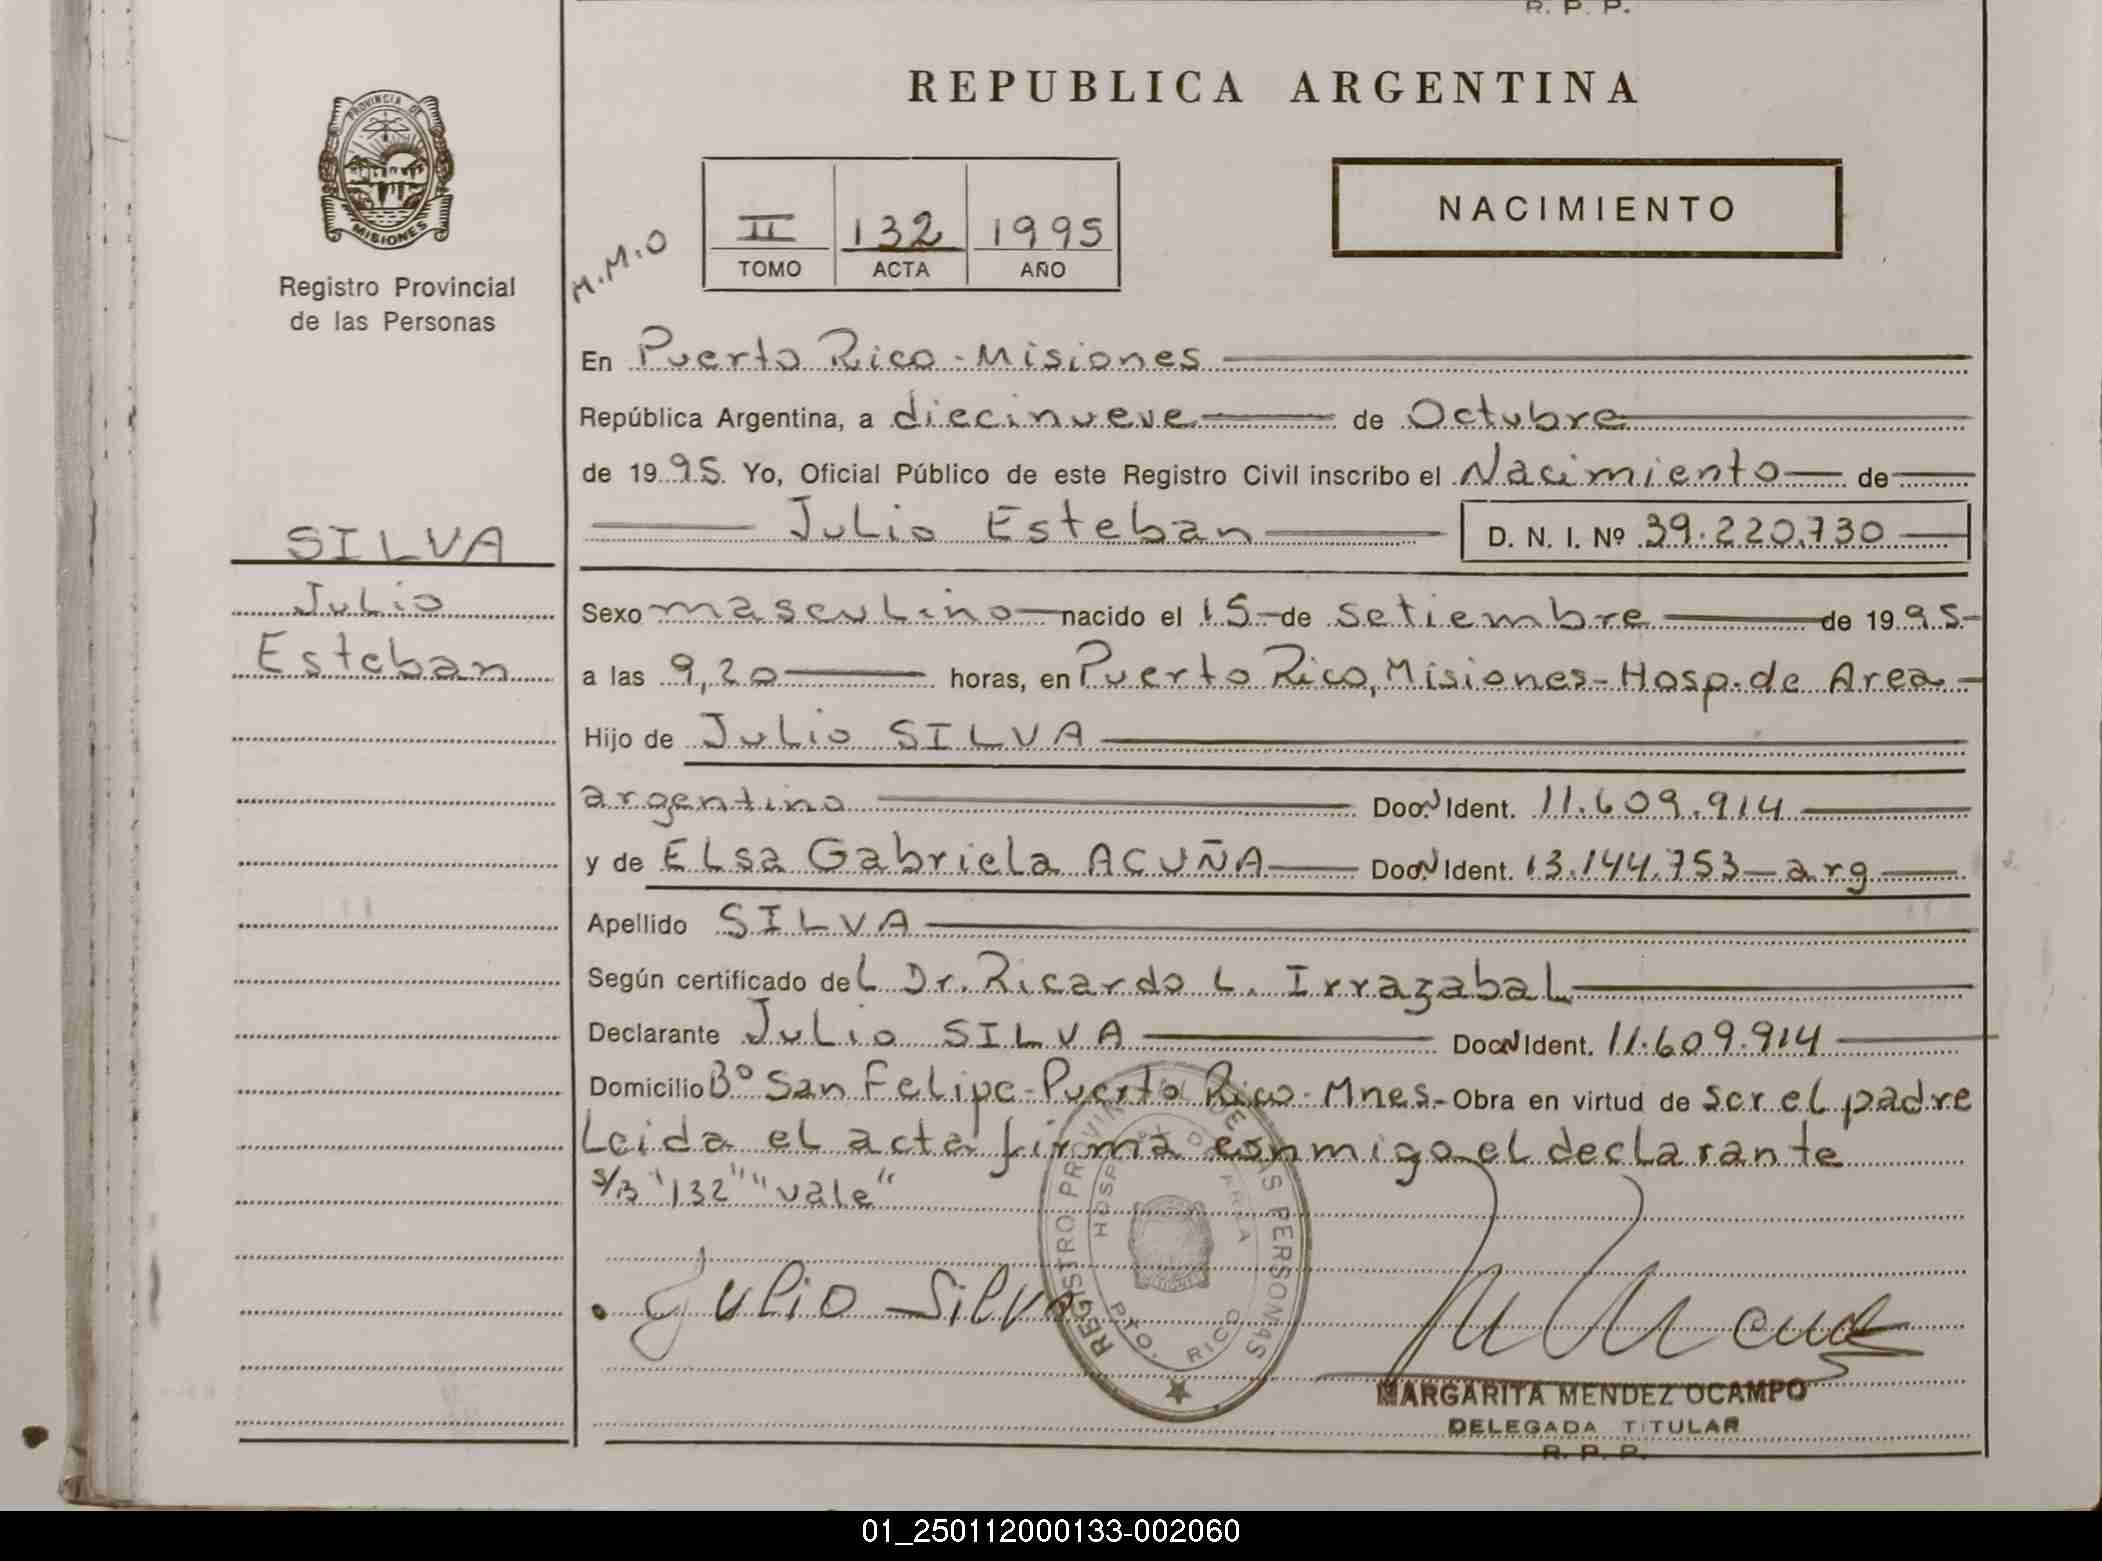 R. P. P.
REPUBLICA ARGENTINA
PROVINCIA DE
MISIONES
Registro Provincial
de las Personas
M.M.O
II 132 1995
TOMO ACTA AÑO
NACIMIENTO
En Puerto Rico - Misiones
República Argentina, a diecinueve de Octubre
de 1995. Yo, Oficial Público de este Registro Civil inscribo el Nacimiento de
SILVA
Julio Esteban D. N. I. Nº 39.220.730
Julio
Esteban
Sexo masculino nacido el 15 de setiembre de 1995
a las 9,20 horas, en Puerto Rico, Misiones - Hosp. de Area
Hijo de Julio SILVA
argentino Doc. N Ident. 11.609.914
y de Elsa Gabriela ACUÑA Doc. N Ident. 13.144.753 - arg
Apellido SILVA
Según certificado del Dr. Ricardo L. Irrazabal
Declarante Julio SILVA Doc. N Ident. 11.609.914
Domicilio Bº San Felipe - Puerto Rico - Mnes. - Obra en virtud de ser el padre
Leida el acta firma conmigo el declarante
s/B "132" "vale"
Julio Silva
REGISTRO PROVINCIAL DE LAS PERSONAS
HOSPITAL DE AREA
PTO. RICO
MARGARITA MENDEZ OCAMPO
DELEGADA TITULAR
R. P. P.
01_250112000133-002060